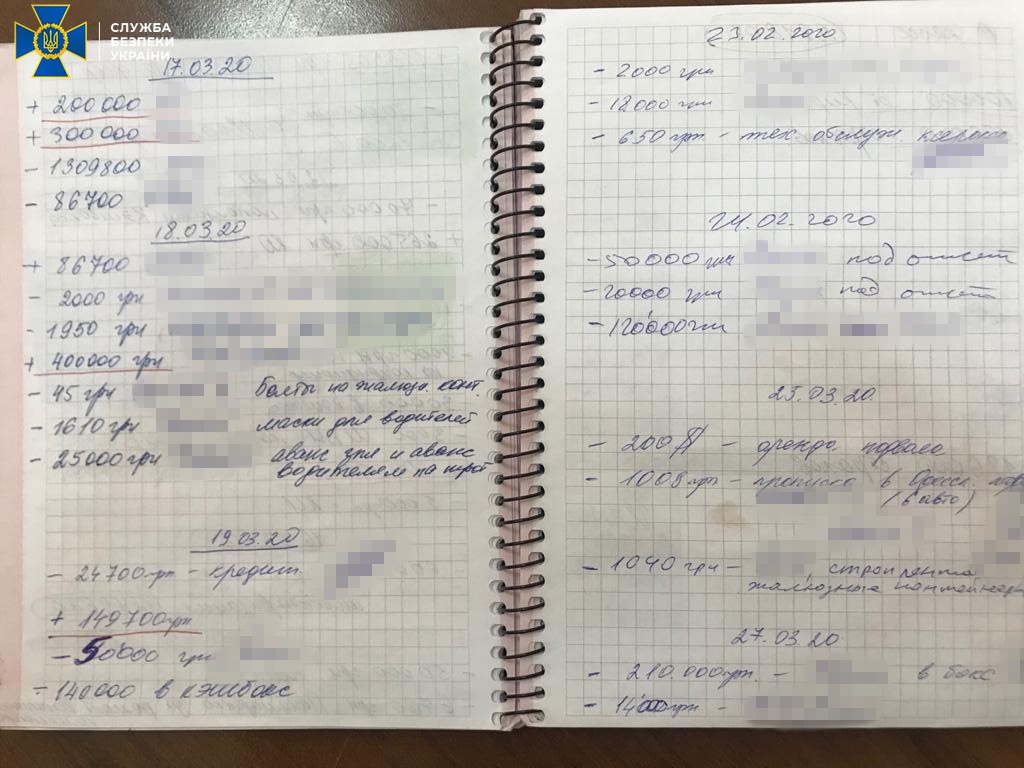 СЛУЖБА
БЕЗПЕКИ
УКРАЇНИ
17.03.20
+ 200 000
+ 300 000
- 1309800
- 86700
18.03.20
+ 86700
- 2000 грн
- 1950 грн
+ 400000 грн
- 45 грн болты на жалюзи. конт.
- 1610 грн маски для водителей
- 25000 грн аванс зпл и аванс
водителям на
19.03.20
- 24700 грн - кредит.
+ 149700 грн
- 50000 грн
- 140000 в кэшбокс
23.02.2020
- 2000 грн
- 12000 грн
- 650 грн. - тех. обслуж. ксерокса
24.02.2020
- 50000 грн под отчет
- 20000 грн под отчет
- 120000 грн
25.03.20
- 200 $ - аренда подвала
- 1008 грн - прописка в
(6 авто)
- 1040 грн - строп лента
жалюзные контейнера
27.03.20
- 210.000 грн. - в бокс
- 1400 грн -